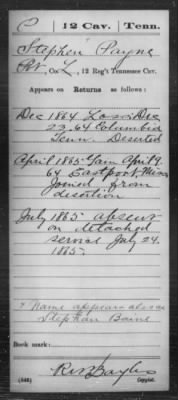 C 12 Cav. Tenn.
Stephen Payne
Pvt, Co. L, 12 Reg't Tennessee Cav.
Appears on Returns as follows:
Dec 1864 Loss Dec
23, 64 Columbia
Tenn. Deserted
April 1865 Gain April 9,
64 Eastport, Miss
Joined from
desertion
July 1865 absent
on detached
service July 24,
1865.
Name appears also as
Stephan Baine
Book mark:
Copyist.